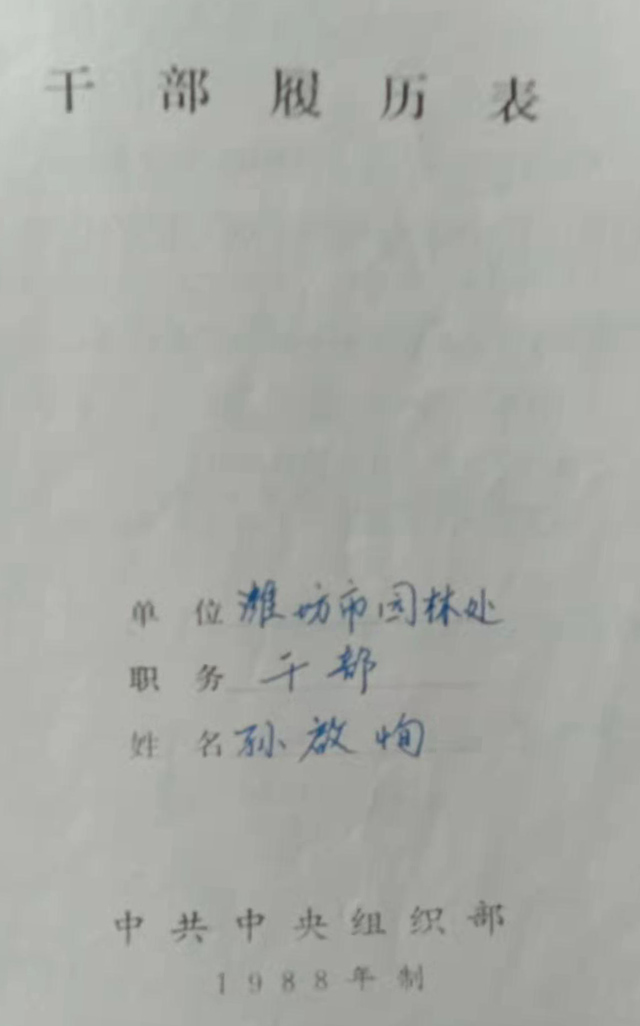 干部履历表
单位 潍坊市园林处
职务 干部
姓名 孙启恂
中共中央组织部
1988年制